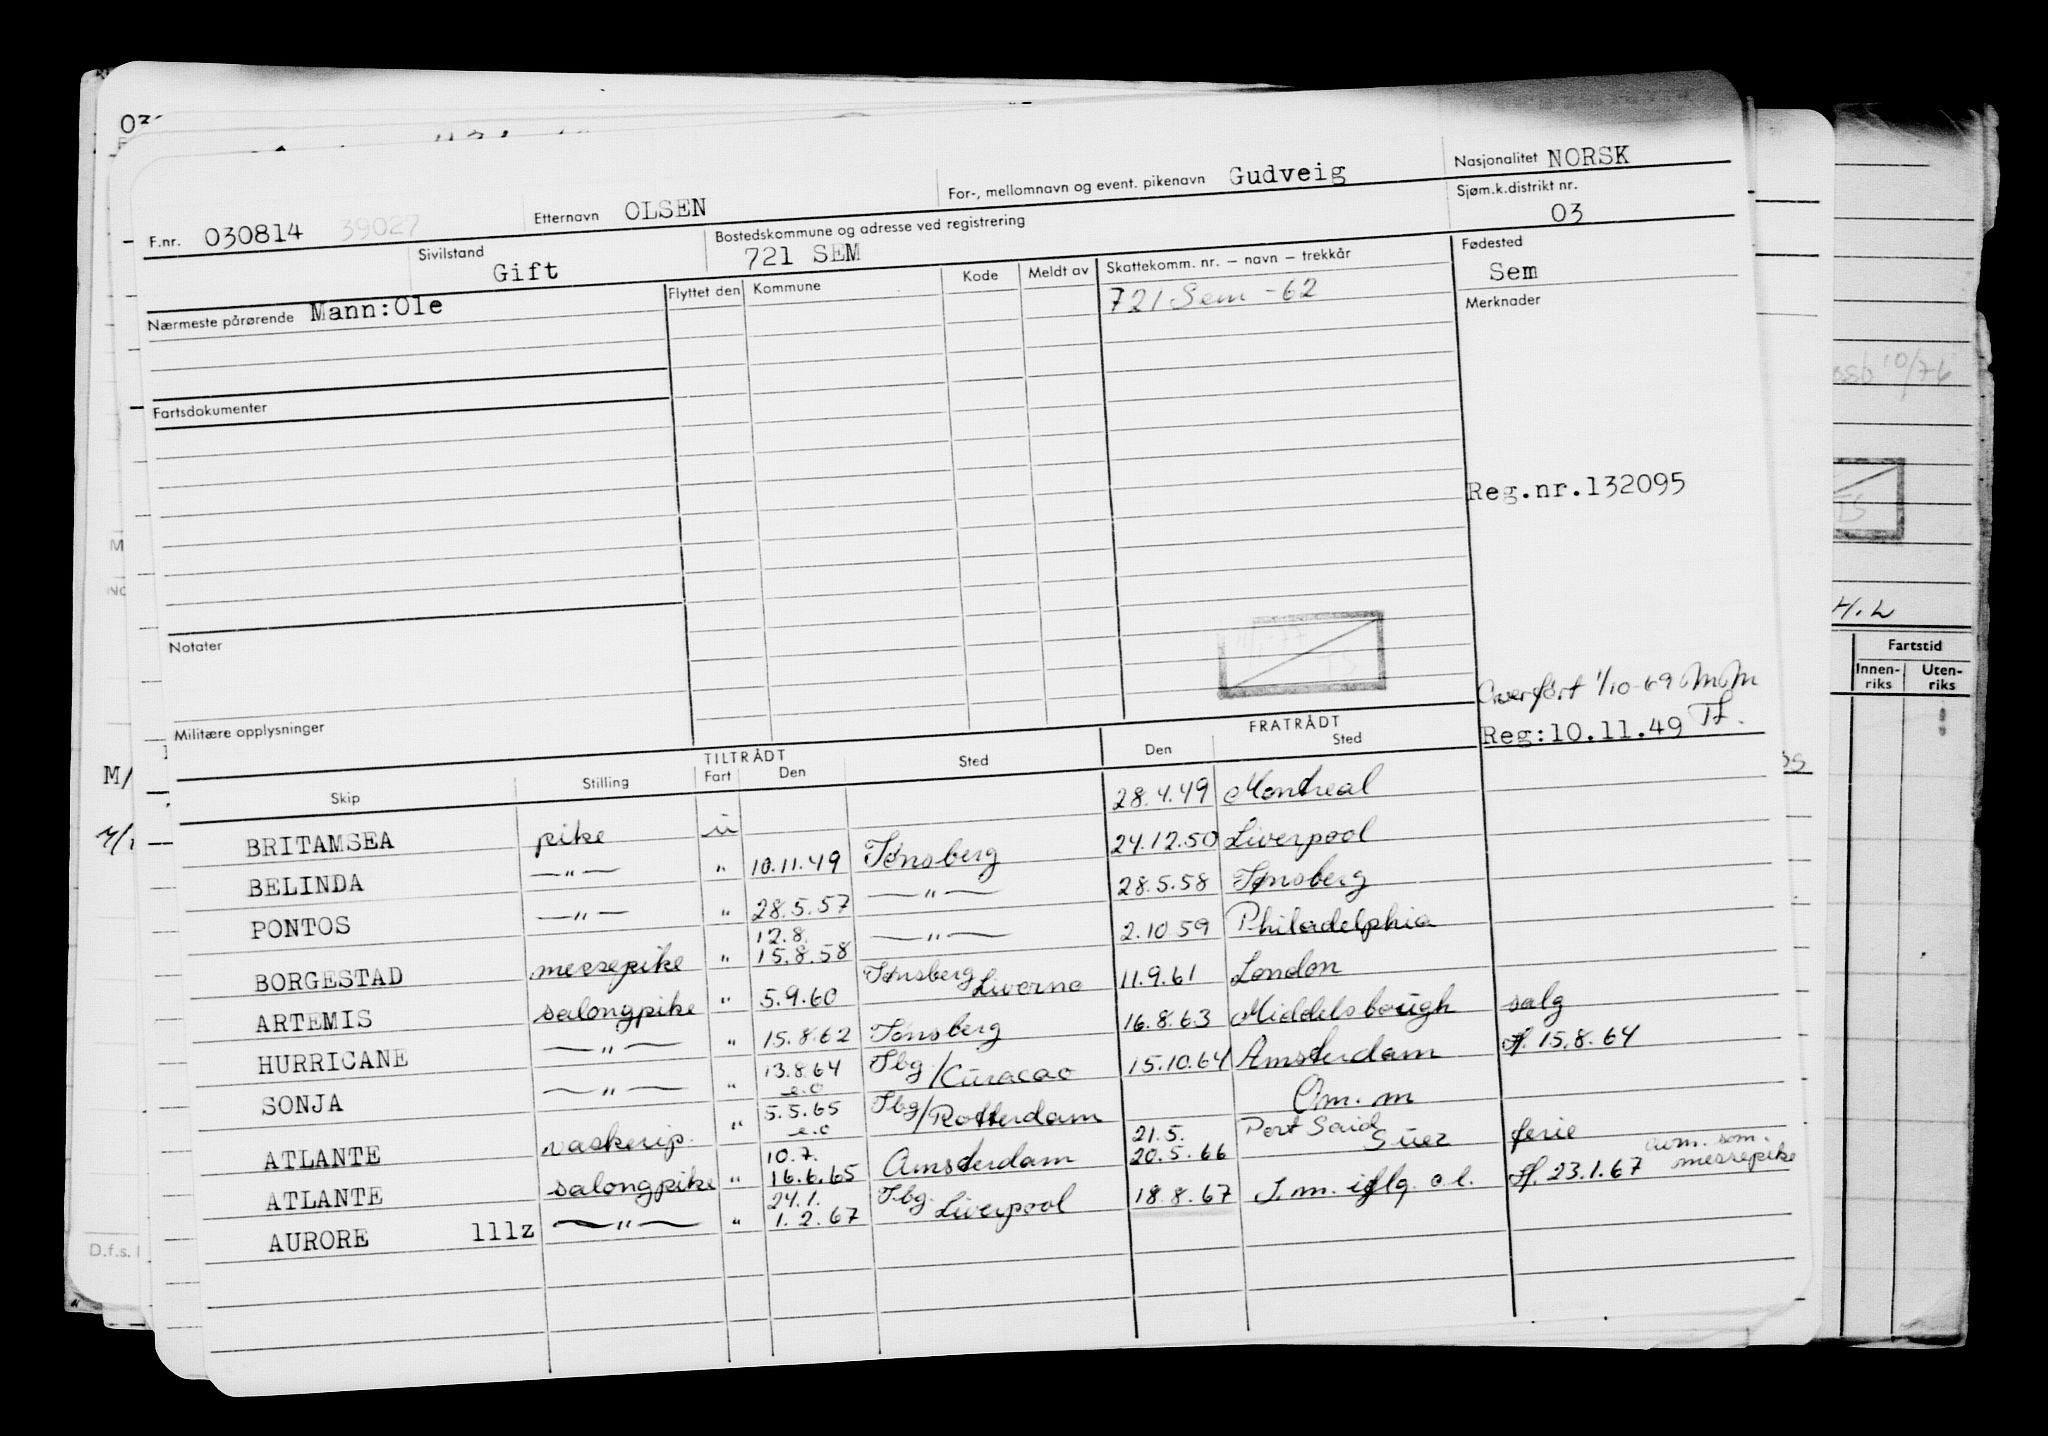 F.nr. 030814 39027 Etternavn OLSEN For-, mellomnavn og event. pikenavn Gudveig Nasjonalitet NORSK
Sivilstand Gift Bostedskommune og adresse ved registrering 721 SEM Sjøm.k.distrikt nr. 03
Nærmeste pårørende Mann:Ole Flyttet den Kommune Kode Meldt av Skattekomm. nr. – navn – trekkår Fødested Sem
721 Sem -62 Merknader
Fartsdokumenter
Reg.nr.132095
Notater
Overført 1/10-69 MM
Militære opplysninger Reg:10.11.49 Tf.
TILTRÅDT FRATRÅDT
Skip Stilling Fart Den Sted Den Sted
BRITAMSEA pike u 28.4.49 Montreal
BELINDA —"— " 10.11.49 Tønsberg 24.12.50 Liverpool
PONTOS —"— " 28.5.57 —"— 28.5.58 Tønsberg
BORGESTAD messepike " 12.8. 15.8.58 —"— 2.10.59 Philadelphia
ARTEMIS salongpike " 5.9.60 Tønsberg Liverno 11.9.61 London
HURRICANE —"— " 15.8.62 Tønsberg 16.8.63 Middelsbough salg
SONJA —"— " 13.8.64 e.o Tbg/Curacao 15.10.64 Amsterdam ff. 15.8.64
ATLANTE vaskerip. " 5.5.65 e.o Tbg/Rotterdam Om. m
ATLANTE salongpike " 10.7. 16.6.65 Amsterdam 21.5. 20.5.66 Port Said Suez ferie
AURORE 111z —"— " 24.1. 1.2.67 Tbg. Liverpool 18.8.67 I.m. iflg. o l. ff. 23.1.67 avm. som. messepike
H.L
Fartstid
Innen-
riks
Uten-
riks
D.f.s.